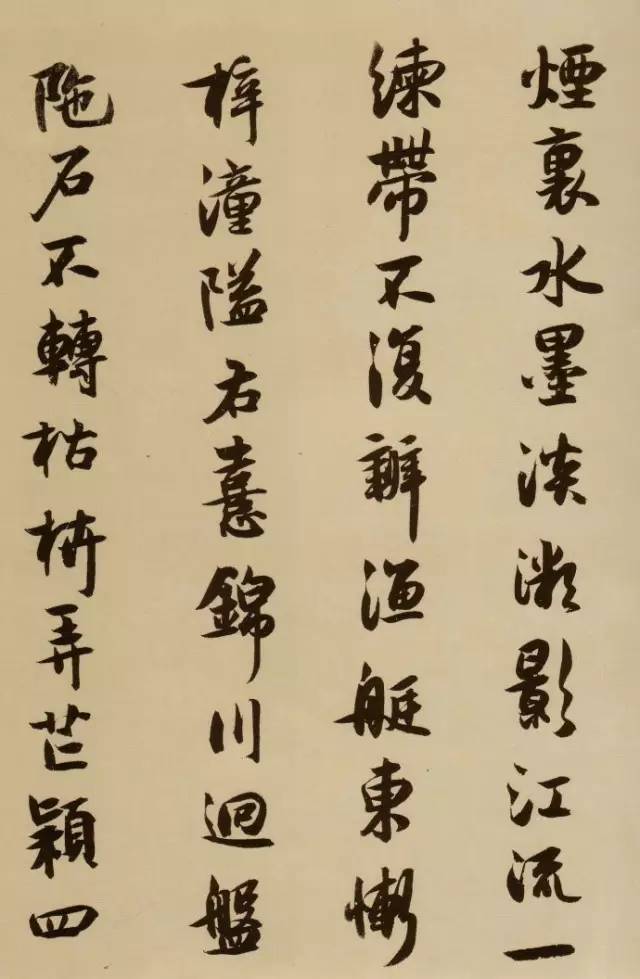 煙裏水墨淡潎影江流一
練帶不復辨漁艇東慚
梓潼隘右憙錦川迴盤
陁石不轉枯枿弄芒穎四